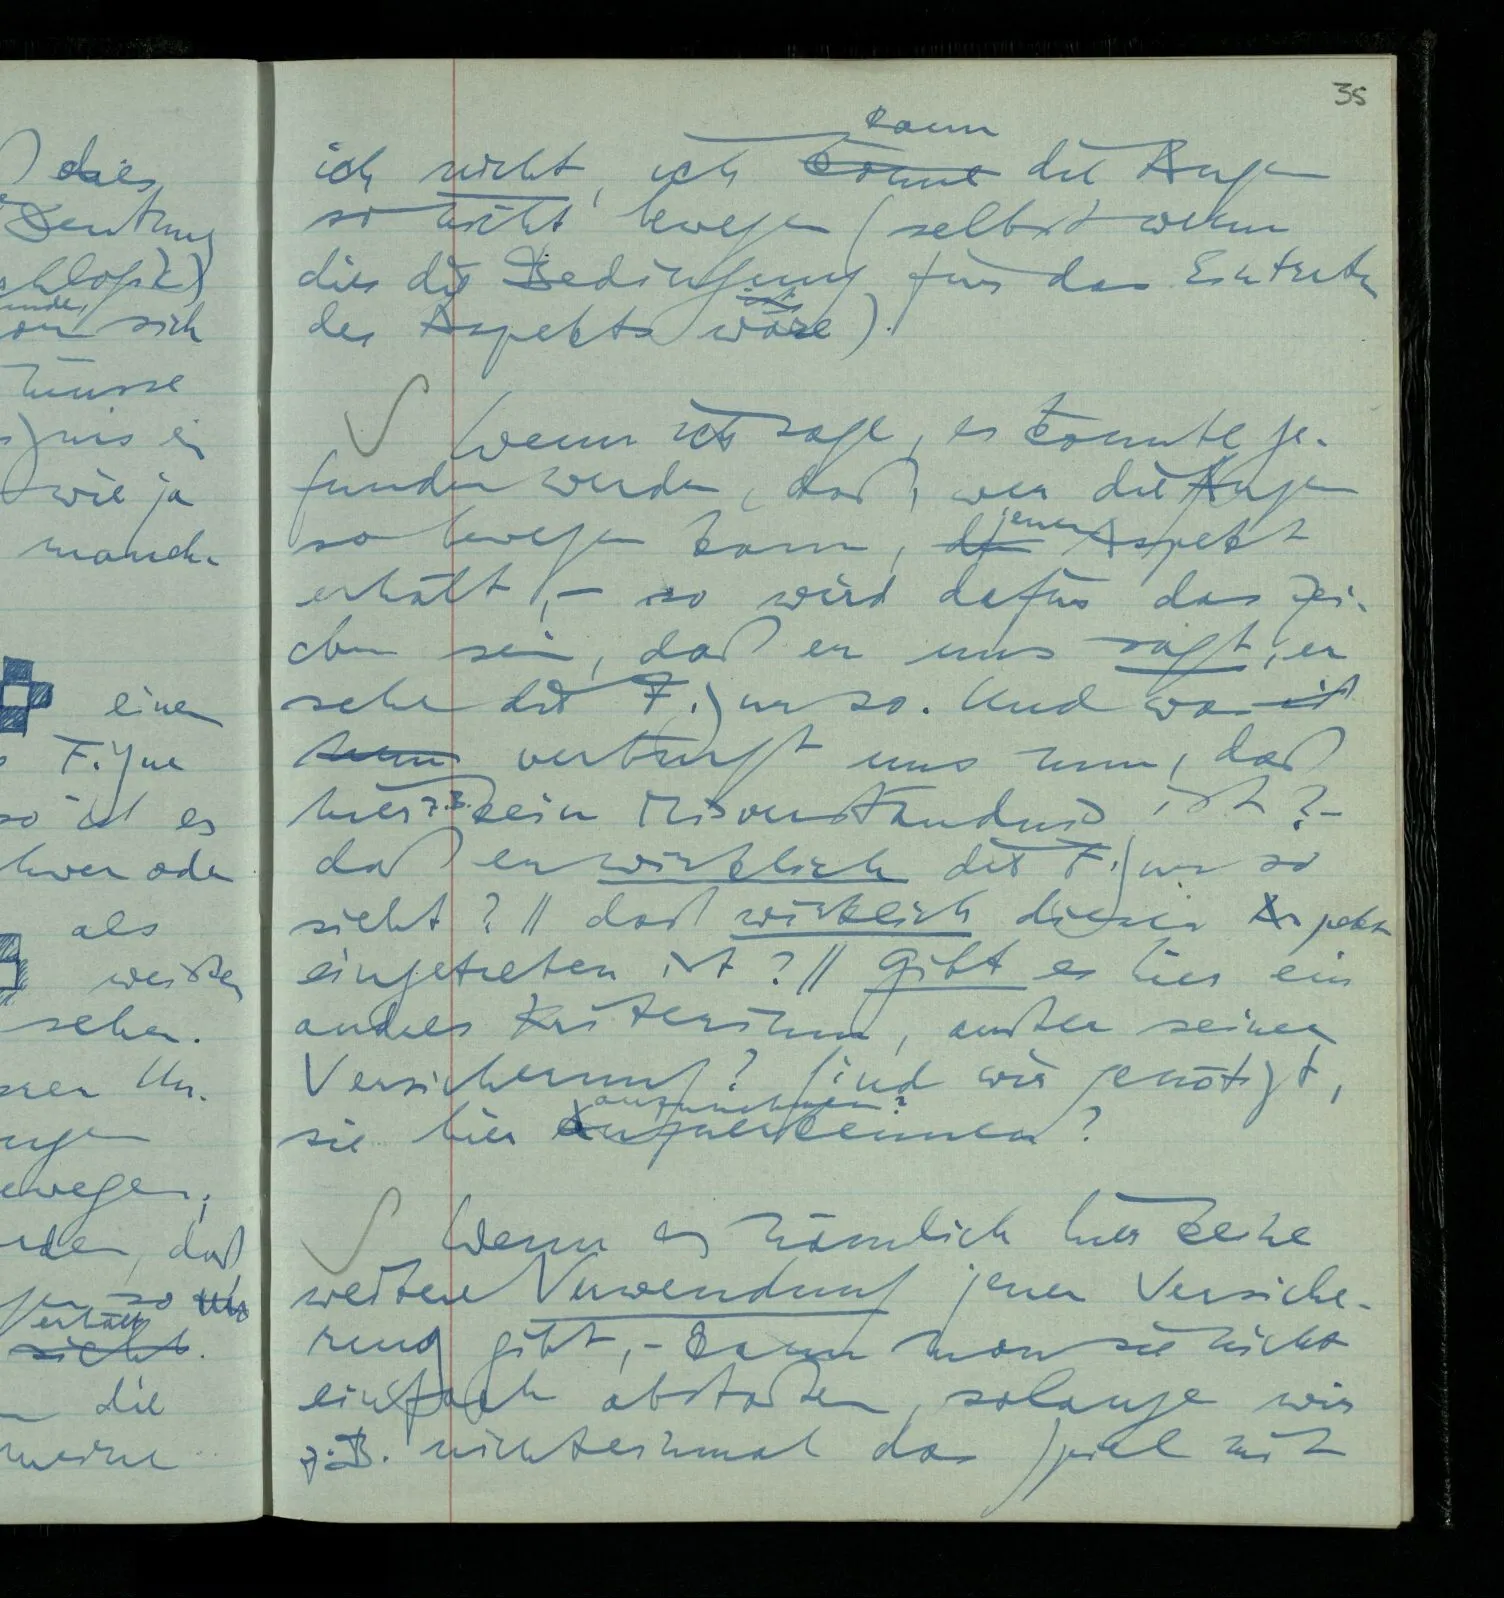 dies
Deutung
sich
müsse
wie ja
manch-
einen
Figur
so ist es
schwer oder
als
weißen
sehen.
Un-
bewegen;
den, daß
so
erhält
sieht.
die
meine
35
kann
ich nicht, ich könnte die Augen
so nicht bewegen (selbst wenn
dies die Bedingung für das Eintreten
ist
des Aspekts wäre).
Wenn ich sage, es könnte ge-
funden werden, daß, wer die Augen
jenen
so bewegen kann, den Aspekt
erhält, – so wird dafür das Zei-
chen sein, daß er uns sagt, er
sehe die Figur so. Und was ist
denn verbürgt uns nun, daß
hier z.B. kein Misverständnis ist? –
daß er wirklich die Figur so
sieht? // daß wirklich dieser Aspekt
eingetreten ist? // Gibt es hier ein
andres Kriterium, außer seiner
Versicherung? Sind wir genötigt,
anzunehmen?
sie hier anzuerkennen?
Wenn es nämlich hier keine
weitere Verwendung jener Versiche-
rung gibt, – kann man sie nicht
einfach abstoßen, solange wir
z.B. nichteinmal das Spiel mit